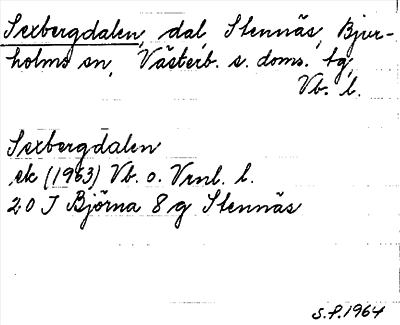 Sexbergdalen, dal, Stennäs, Bjur-
holms sn, Västerb. s. doms. tg,
Vb. l.
Sexbergdalen
ek (1963) Vb. o. Vrnl. l.
20 J Björna 8 g Stennäs
S.P. 1964